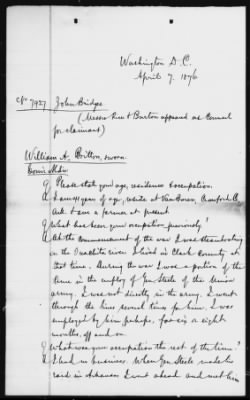 Washington D.C.
April 7. 1876
No 7927 John Bridges
(Messrs & Burton appeared as Counsel
for claimant)
William A. Bitton, sworn
Q Please state your age, residence & occupation.
A I am years of age, reside at Van Buren, Crawford Co
Ark. I am a farmer at present
Q What has been your occupation previously?
A At the Commencement of the war I was steamboating
on the Ouachita river. I lived in Clark County at
that time. During the war I was a portion of the
time in the employ of Gen Steele of the Union
army. I was not directly in the army. I went
through the lines several times for him. I was
employed by him perhaps, for six or eight
months, off and on
Q What was your occupation the rest of the time?
A I had no business. When Gen Steele made his
raid in Arkansas I went ahead and met him